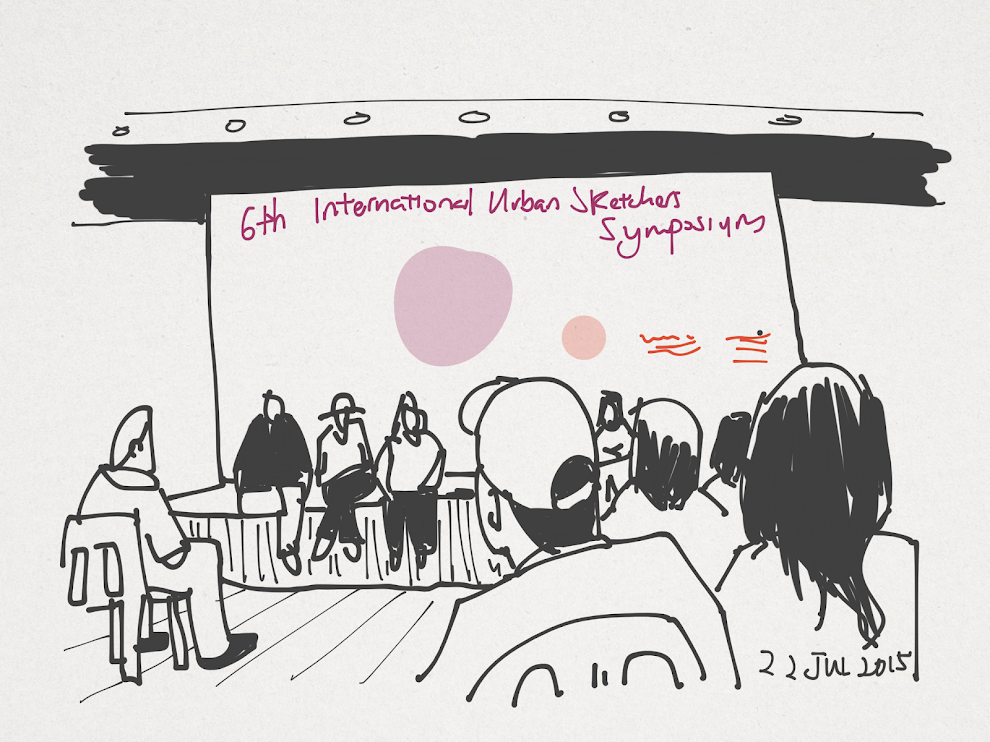 6th International Urban Sketchers
Symposium
22 JUL 2015